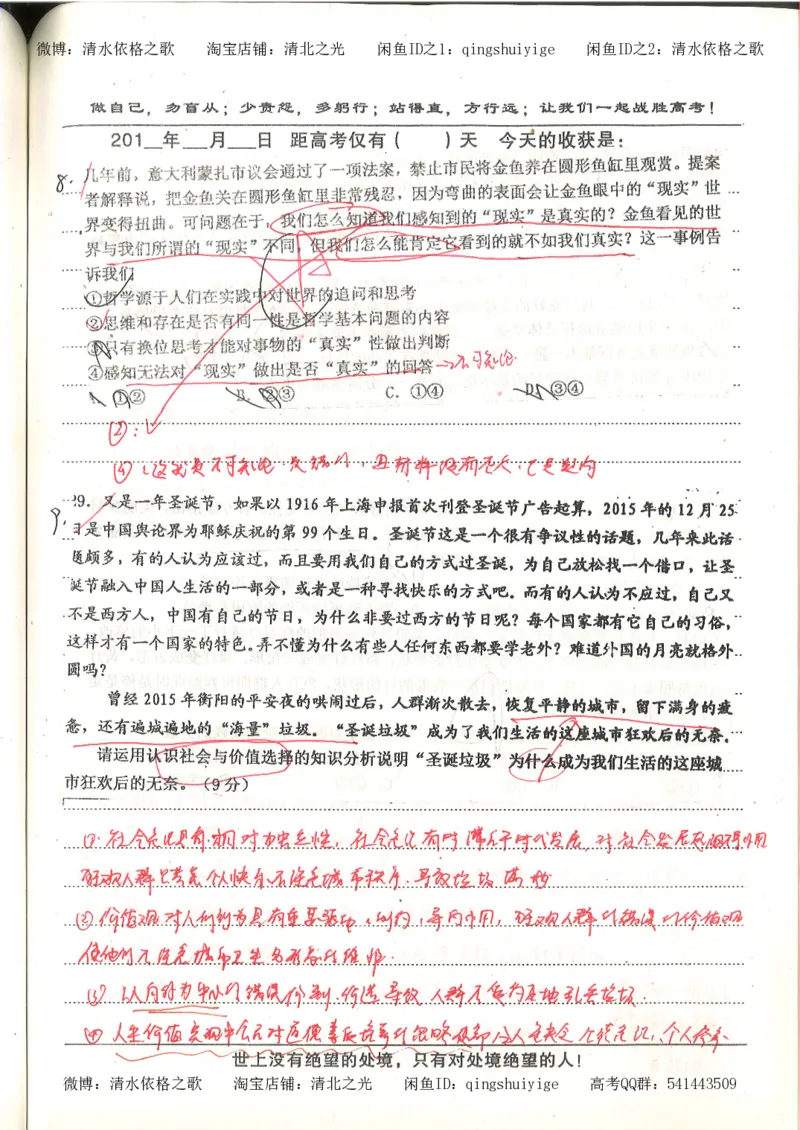 微博：清水依格之歌　　淘宝店铺：清北之光　　闲鱼ID之1：qingshuiyige　　闲鱼ID之2：清水依格之歌
做自己，勿盲从；少责怨，多躬行；站得直，方行远；让我们一起战胜高考！
201__年___月___日　距高考仅有（　　）天　今天的收获是：
8. 几年前，意大利蒙扎市议会通过了一项法案，禁止市民将金鱼养在圆形鱼缸里观赏。提案
者解释说，把金鱼关在圆形鱼缸里非常残忍，因为弯曲的表面会让金鱼眼中的“现实”世
界变得扭曲。可问题在于，我们怎么知道我们感知到的“现实”是真实的？金鱼看见的世
界与我们所谓的“现实”不同，但我们怎么能肯定它看到的就不如我们真实？这一事例告
诉我们
①哲学源于人们在实践中对世界的追问和思考
②思维和存在是否有同一性是哲学基本问题的内容
③只有换位思考才能对事物的“真实”性做出判断
④感知无法对“现实”做出是否“真实”的回答→不可知论
A. ①②　　B. ②③　　C. ①④　　D. ③④
②：
④：这就是不可知论
9. 39. 又是一年圣诞节，如果以1916年上海申报首次刊登圣诞节广告起算，2015年的12月25
日是中国舆论界为耶稣庆祝的第99个生日。圣诞节这是一个很有争议性的话题，几年来此话
题颇多，有的人认为应该过，而且要用我们自己的方式过圣诞，为自己放松找一个借口，让圣
诞节融入中国人生活的一部分，或者是一种寻找快乐的方式吧。而有的人认为不应过，自己又
不是西方人，中国有自己的节日，为什么非要过西方的节日呢？每个国家都有它自己的习俗，
这样才有一个国家的特色。弄不懂为什么有些人任何东西都要学老外？难道外国的月亮就格外
圆吗？
曾经2015年衡阳的平安夜的哄闹过后，人群渐次散去，恢复平静的城市，留下满身的疲
惫，还有遍城遍地的“海量”垃圾。“圣诞垃圾”成为了我们生活的这座城市狂欢后的无奈。
请运用认识社会与价值选择的知识分析说明“圣诞垃圾”为什么成为我们生活的这座城
市狂欢后的无奈。（9分）
①社会意识具有相对独立性，社会意识有时落后于时代发展，对社会发展起阻碍作用
狂欢人群只考虑个人快乐不注意城市秩序，导致垃圾满地
②价值观对人们行为具有重要驱动，制约，导向作用，狂欢人群的错误的价值观
使他们不注意城市卫生
③以自我为中心的错误价值判断，价选导致人群不负
④人生价值实现
世上没有绝望的处境，只有对处境绝望的人！
微博：清水依格之歌　　淘宝店铺：清北之光　　闲鱼ID：qingshuiyige　　高考QQ群：541443509